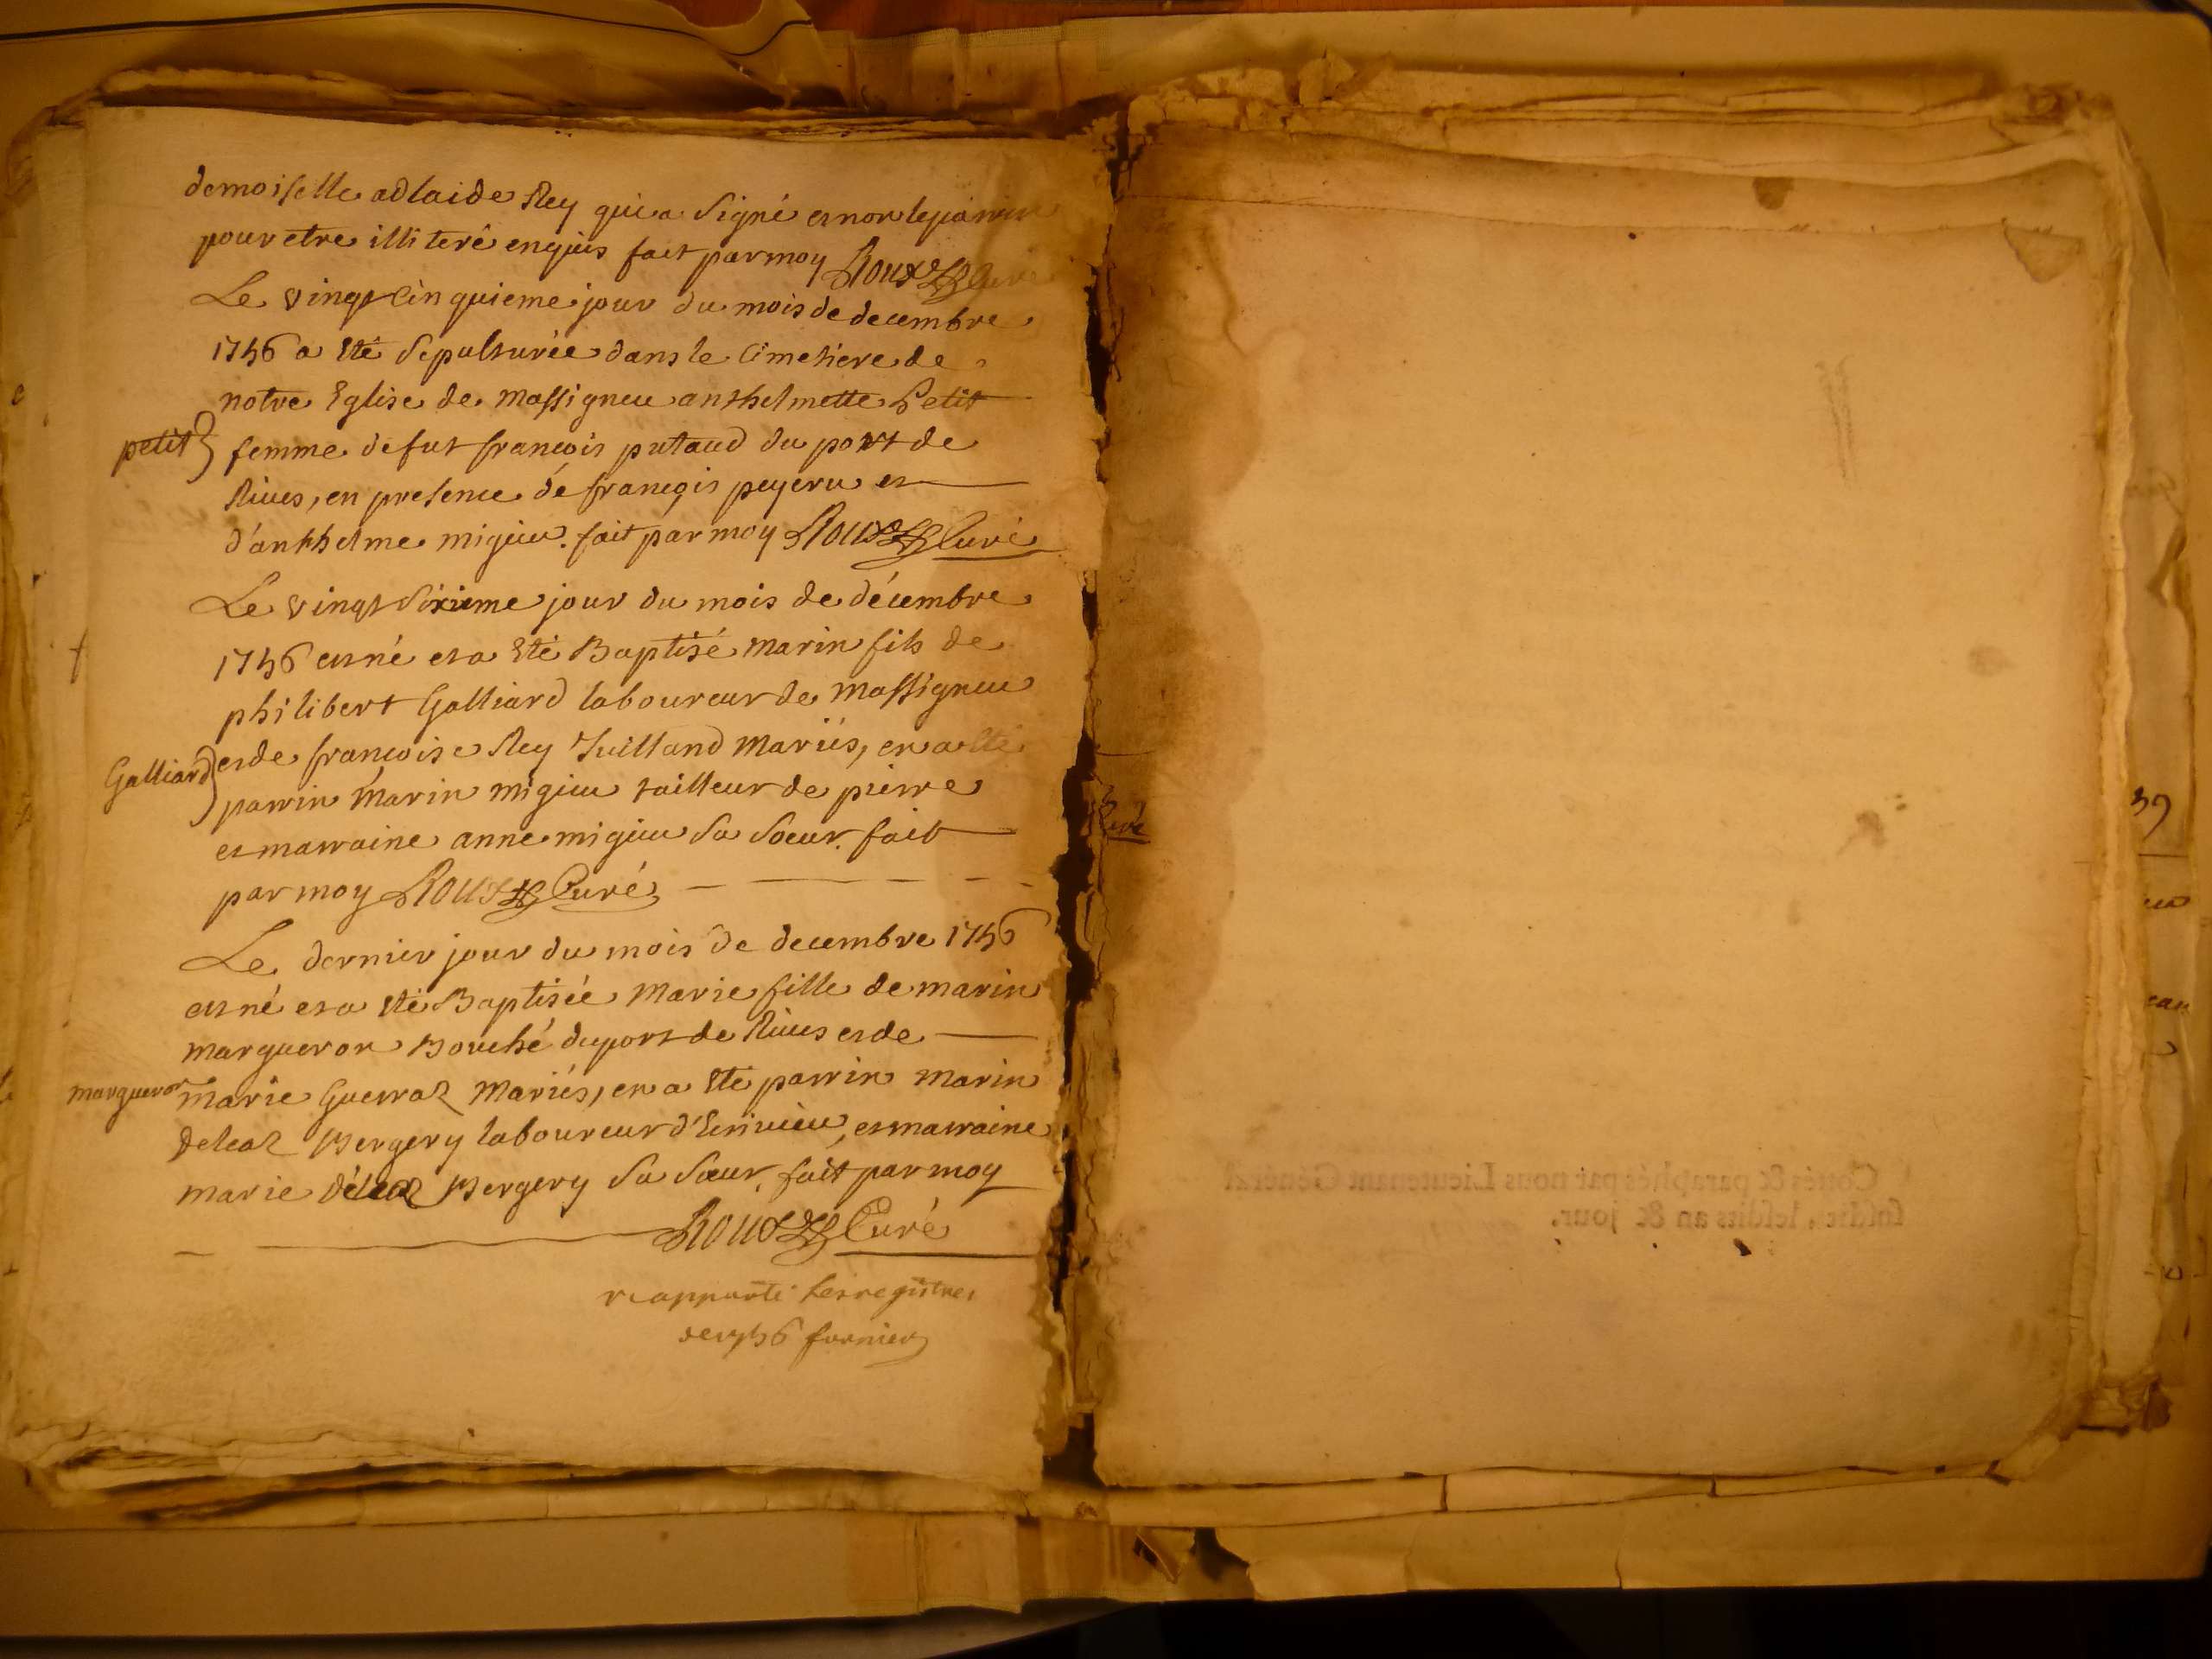 demoiselle adlaide Rey qui a signé et non le parrin
pour etre illiteré enquis fait par moy Roux Curé
Le vingt cinquieme jour du mois de decembre
1756 a eté sepulturée dans le cimetiere de
notre Eglise de Massigneu anthelmette Petit
petit
femme de fut françois putaud du port de
Rives, en presence de françois peyeru et
d'anthelme migieu. fait par moy Roux Curé
Le vingt sixieme jour du mois de décembre
1756 est né et a eté Baptisé Marin fils de
philibert Galliard laboureur de Massigneu
Galliard
et de françoise Rey Juilland Mariés, en a eté
parrin Marin migieu tailleur de pierre
et marraine anne migieu sa soeur. fait
par moy Roux Curé
Le dernier jour du mois de decembre 1756
est né et a eté Baptisée Marie fille de marin
margueron Bouché du port de Rives et de
margueron
marie Guerraz Mariés, en a eté parrin Marin
Deleaz Bergery laboureur d'Ecrivieu, et marraine
marie déleaz Bergery sa sœur, fait par moy
Roux Curé
raapporté les registres
de 1756 fornier
Curé
59
Cottés & paraphés par nous Lieutenant Général
susdit, lesdits an & jour.